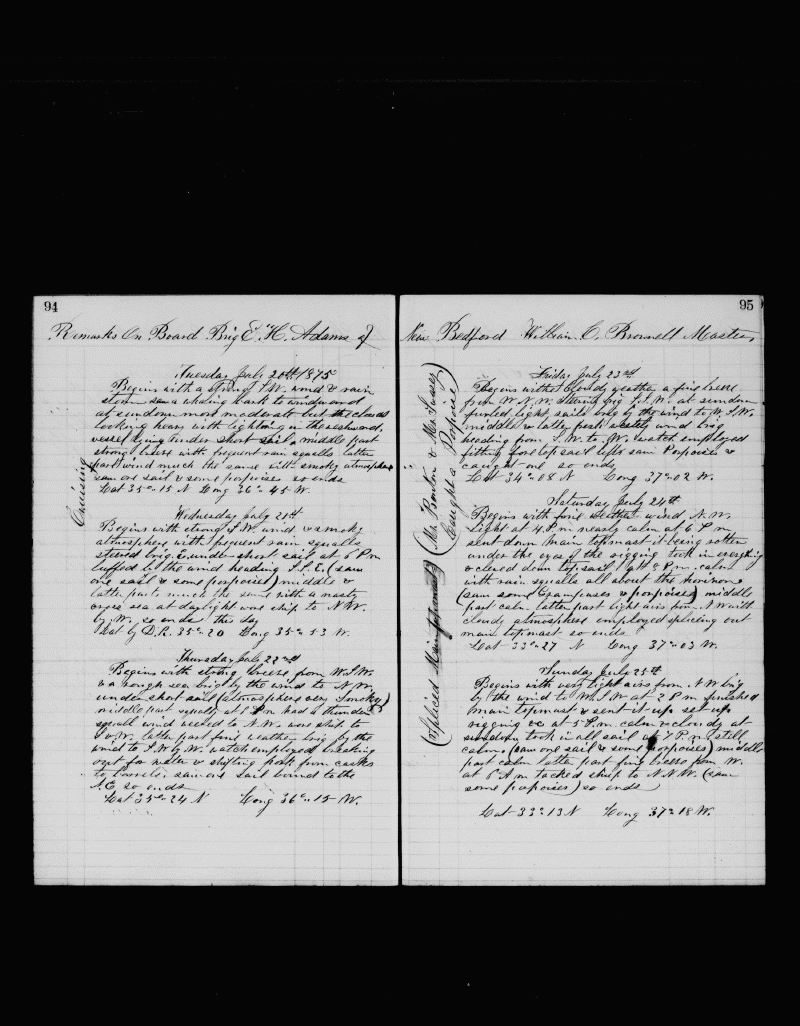 94
Remarks On Board Brig E. H. Adams of
Tuesday July 20th/1875
Begins with a strong S.W. wind & rain
storm saw a whaling bark to windward
at sundown more moderate but the clouds
looking heavy with lightning in the eastward
vessel lying under short sail middle part
strong breeze with frequent rain squalls latter
part wind much the same with smoky atmosphere
saw one sail & some porpoises so ends
Lat 35=15 N Long 36=45 W.
Cruising
Wednesday July 21st
Begins with strong S.W. wind & smoky
atmosphere with frequent rain squalls
steered brig E. under short sail at 6 P m
luffed to the wind heading S.S.E. (saw
one sail & some porpoises) middle &
latter parts much the same with a nasty
cross sea at daylight wore ship to N W.
by W. so ends this day
Lat by D.R. 35=20 Long 35=53 W.
Thursday July 22nd
Begins with strong breeze from W.S.W.
& a rough sea brig by the wind to N W
under short sail (atmosphere very Smoky)
middle part squally at 8 P m had a thunder
squall wind veered to N.W. wore ship to
S.W. latter part fine weather brig by the
wind to S.W by W. watch employed breaking
out for water & shifting pork from casks
to barrels. saw one sail bound to the
S.E so ends
Lat 35=24 N Long 36=15 W.
95
New Bedford William C. Brownell Master
Friday July 23rd
Begins with cloudy weather a fine breeze
from W.N.W. steering brig S.S.W. at sundown
furled light sails brig by the wind to W.S.W.
middle & latter parts steady wind brig
heading from S.W. to W. watch employed
fitting fore topsail lifts saw Porpoises &
caught one so ends
Lat 34=08 N Long 37=02 W.
(Mr. Bonton & Mr.
Caught a Porpoise)
Saturday July 24th
Begins with fine weather wind N.W.
Light at 4 P.m nearly calm at 6 P m
sent down main topmast it being rotten
under the eyes of the rigging took in everything
& clewed down top sail at 8 P.m. calm
with rain squalls all about the horizon
(saw some Grampuses & porpoises) middle
part calm latter part light airs from N W with
cloudy atmosphere employed splicing out
main topmast so ends
Lat 33=27 N Long 37=03 W.
(Spliced Main topmast)
Sunday July 25th
Begins with very light airs from N.W brig
by the wind to W.S.W at 2 P m finished
main topmast & sent it up set up
rigging &c at 5 P.m calm & cloudy at
sundown took in all sail at 7 P.m still
calm (saw one sail & some porpoises) middle
part calm latter part fine breeze from W.
at 6 A m tacked ship to N.N.W. (saw
some porpoises) so ends
Lat 33=13 N Long 37=18 W.